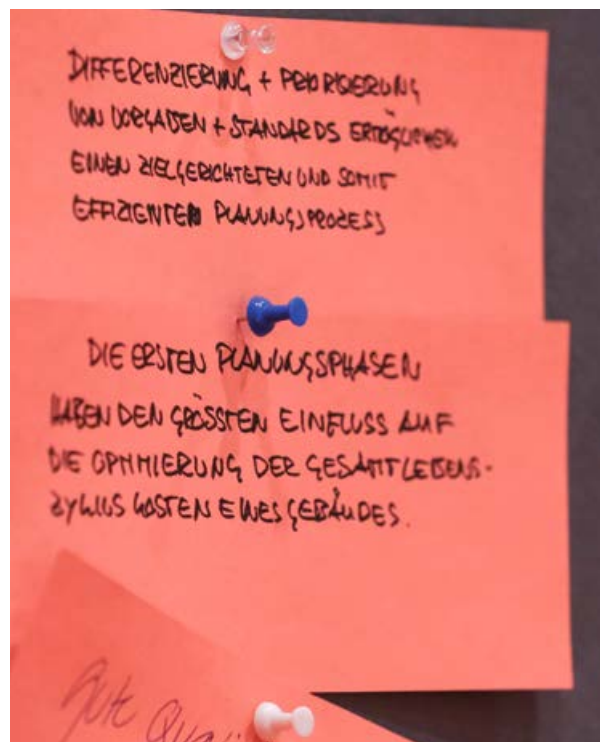 DIFFERENZIERUNG + PRIORISIERUNG
VON VORGABEN + STANDARDS ERMÖGLICHEN
EINEN ZIELGERICHTETEN UND SOMIT
EFFIZIENTEN PLANUNGSPROZESS
DIE ERSTEN PLANUNGSPHASEN
HABEN DEN GRÖSSTEN EINFLUSS AUF
DIE OPTIMIERUNG DER GESAMTLEBENS-
ZYKLUS KOSTEN EINES GEBÄUDES.
Gute